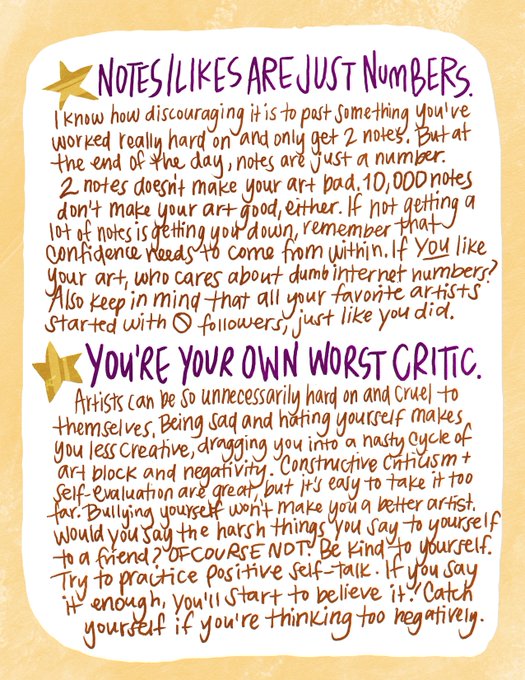 NOTES/LIKES ARE JUST NUMBERS.
I know how discouraging it is to post something you've
worked really hard on and only get 2 notes. But at
the end of the day, notes are just a number.
2 notes doesn't make your art bad. 10,000 notes
don't make your art good, either. If not getting a
lot of notes is getting you down, remember that
confidence needs to come from within. If YOU like
your art, who cares about dumb internet numbers?
Also keep in mind that all your favorite artists
started with 0 followers, just like you did.
YOU'RE YOUR OWN WORST CRITIC.
Artists can be so unnecessarily hard on and cruel to
themselves. Being sad and hating yourself makes
you less creative, dragging you into a nasty cycle of
art block and negativity. Constructive criticism +
self-evaluation are great, but it's easy to take it too
far. Bullying yourself won't make you a better artist.
Would you say the harsh things you say to yourself
to a friend? OF COURSE NOT! Be kind to yourself.
Try to practice positive self-talk. If you say
it enough, you'll start to believe it! Catch
yourself if you're thinking too negatively.